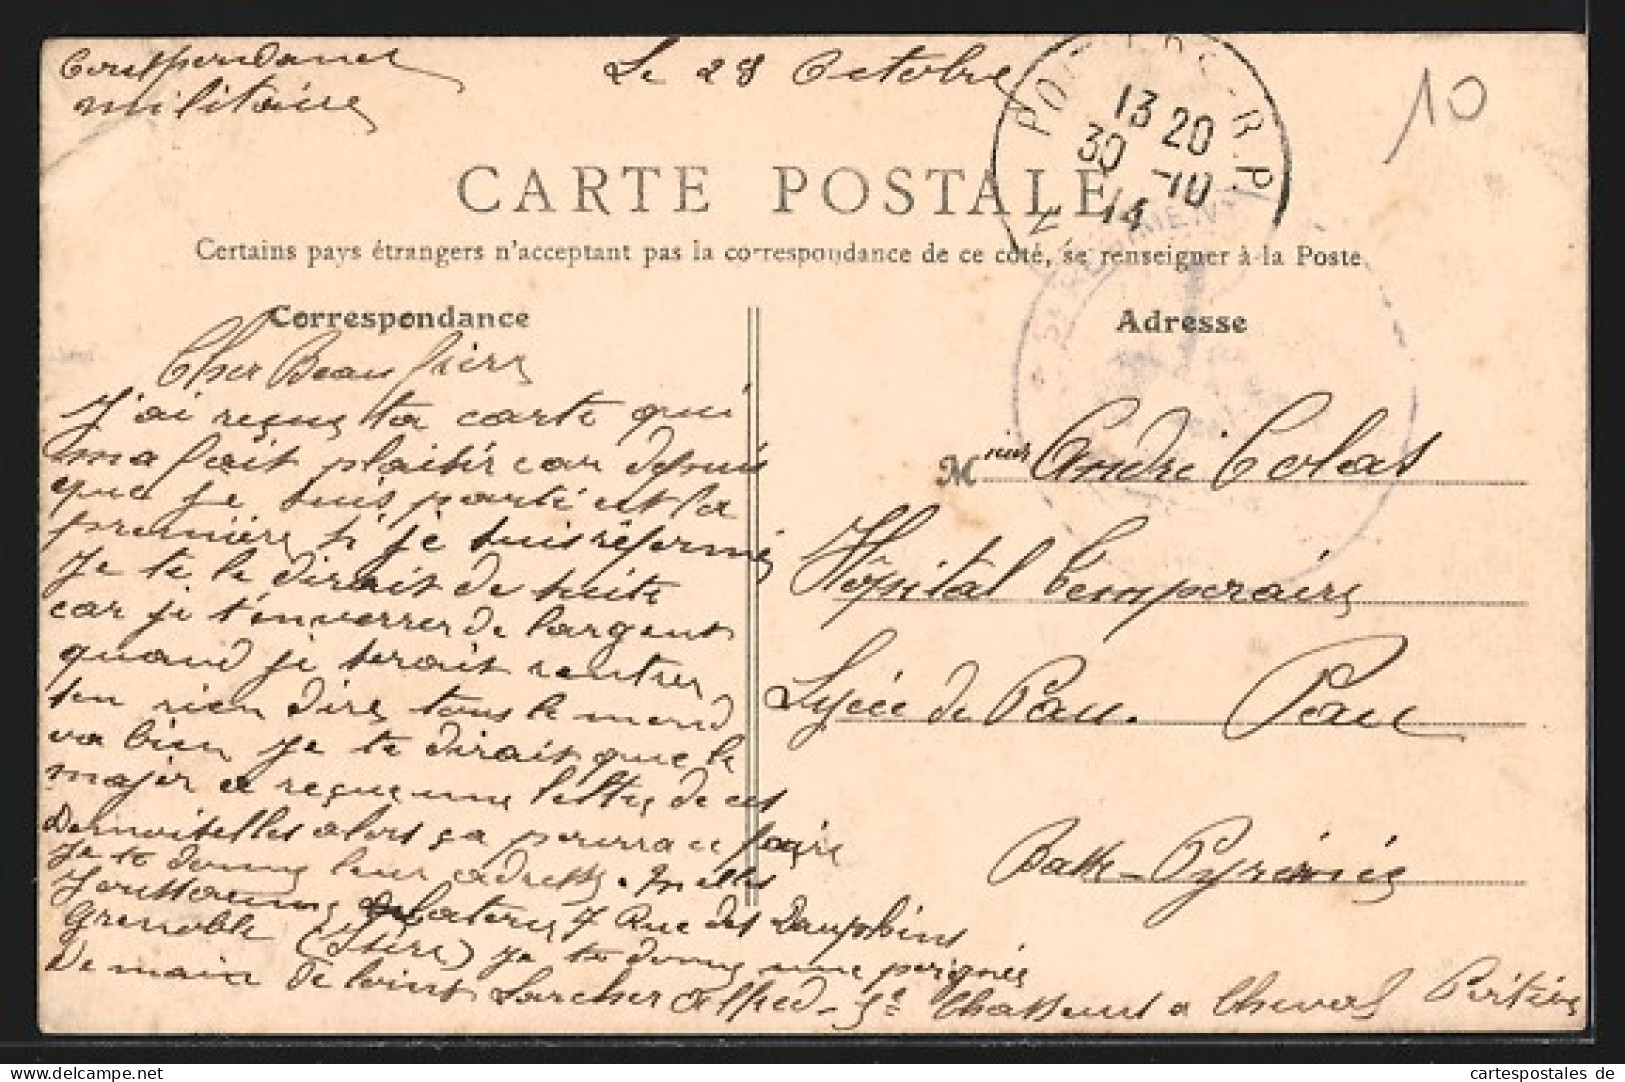 Correspondance
militaire
Le 28 Octobre
10
13 20
30 -10
14
CARTE POSTALE
Certains pays étrangers n'acceptant pas la correspondance de ce côté, se renseigner à la Poste
Correspondance
Cher Beau frere
J'ai reçue ta carte qui
ma fait plaisir car depuis
que je suis partie est la
première si je suis réformé
je te le dirait de suite
car je t'enverrer de l'argent
quand je serait rentrer
sen rien dire tous le mond
va bien je te dirait que le
major a reçue une lettre de ces
Demoiselles alors ça pourra ce faire
je te donne leur adresse. Melles
7 Rue des Dauphins
Grenoble (Isère) je te donne une poignée
De main De loint Larcher Alfred - 5e Chasseurs a Cheval
Adresse
Msieur André Colas
Hôpital Temporaire
Lycée de Pau. Pau
Basse-Pyrénées
cartespostales de
www.delcampe.net